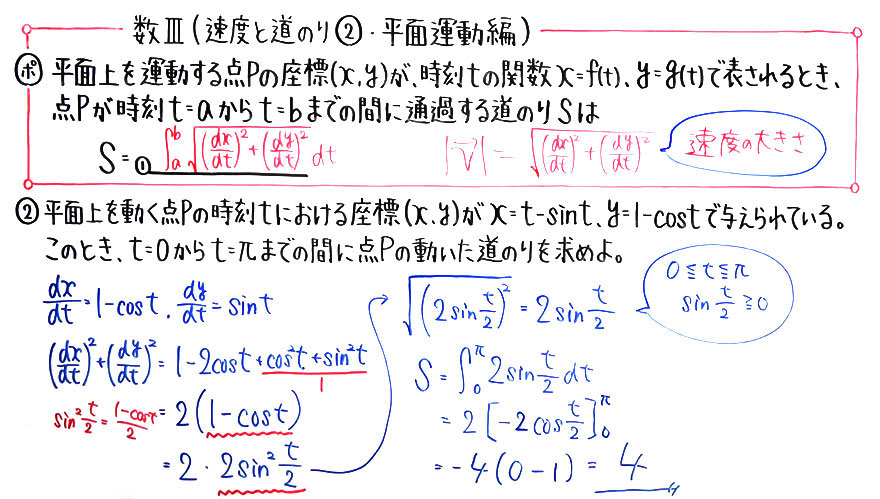 数Ⅲ(速度と道のり②・平面運動編)
ポ 平面上を運動する点Pの座標(x,y)が、時刻tの関数x=f(t)、y=g(t)で表されるとき、
点Pが時刻t=aからt=bまでの間に通過する道のりSは
S=①∫_a^b √((dx/dt)²+(dy/dt)²) dt
|v⃗|=√((dx/dt)²+(dy/dt)²)
速度の大きさ
②平面上を動く点Pの時刻tにおける座標(x,y)がx=t-sint、y=1-costで与えられている。
このとき、t=0からt=πまでの間に点Pの動いた道のりを求めよ。
dx/dt=1-cost、dy/dt=sint
(dx/dt)²+(dy/dt)²=1-2cost+cos²t+sin²t
1
=2(1-cost)
sin²t/2=(1-cost)/2
=2・2sin²t/2
√((2sin t/2)²)=2sin t/2
0≦t≦π
sin t/2≧0
S=∫_0^π 2sin t/2 dt
=2[-2cos t/2]_0^π
=-4(0-1)=4